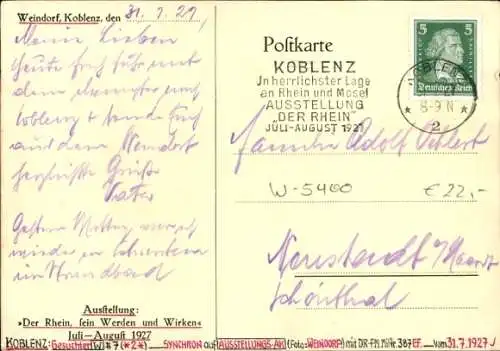 Weindorf, Koblenz, den 31. 7. 27,
Meine Lieben
Heute früh fuhr mit
dem
Coblenz &
aus dem Weindorf
herzlichste Grüße
Vater
Gestern Mittag war ich
wieder in
im Strandbad
Ausstellung:
»Der Rhein, sein Werden und Wirken«
Juli-August 1927
Postkarte
KOBLENZ
In herrlichster Lage
an Rhein und Mosel
AUSSTELLUNG
„DER RHEIN"
JULI-AUGUST 1927
5 5
Deutsches Reich
KOBLENZ
8-9 N
* 2 *
Familie Adolf
W-5400 € 22,-
Neustadt a/ Haardt
Schönthal
KOBLENZ: Gesuchter W#7 (*27) SYNCHRON auf AUSSTELLUNGS-AK (Foto: WEINDORF) mit DR-FM.MiNr 387 EF. vom 31.7.1927